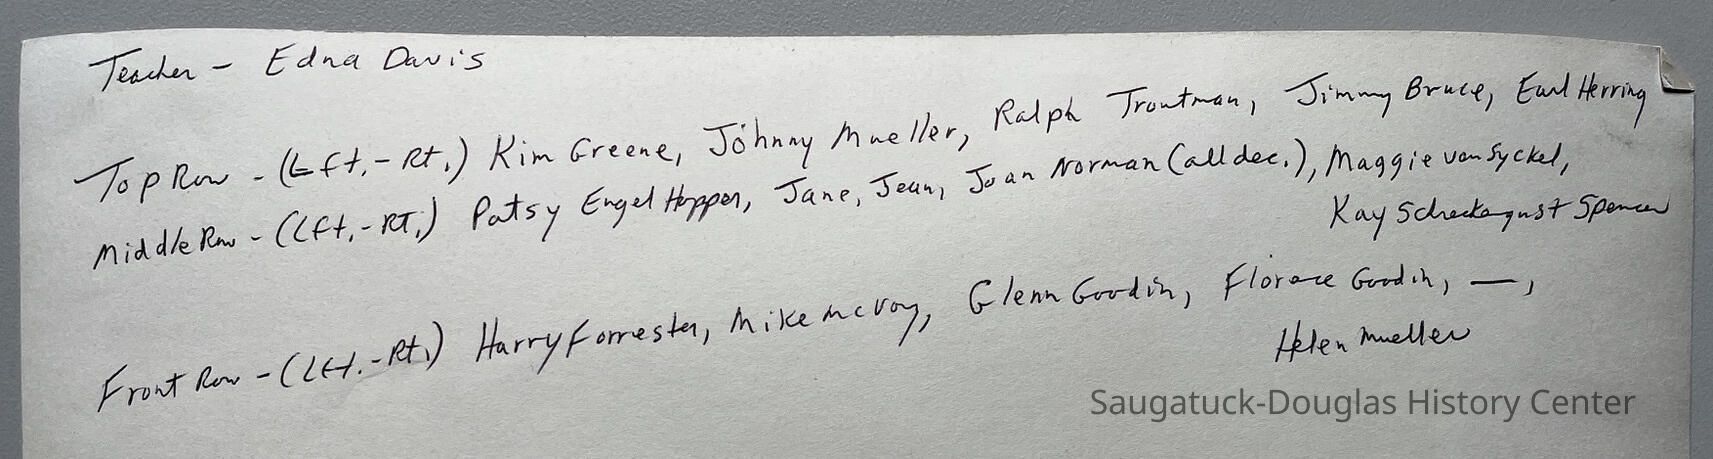 Teacher - Edna Davis
Top Row - (Lft.-Rt.) Kim Greene, Johnny Mueller, Ralph Troutman, Jimmy Bruce, Earl Herring
Middle Row - (Lft.-RT.) Patsy Engel Hopper, Jane, Jean, Joan Norman (all dec.), Maggie van Syckel,
Kay Schreckengust Spencer
Front Row - (Lft.-Rt.) Harry Forrester, Mike McVoy, Glenn Goodin, Florece Goodin, —,
Helen Mueller
Saugatuck-Douglas History Center